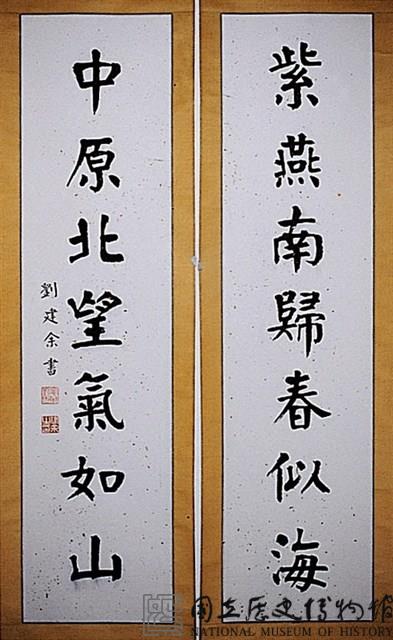 紫燕南歸春似海
中原北望氣如山
劉建余書
國立歷史博物館
NATIONAL MUSEUM OF HISTORY